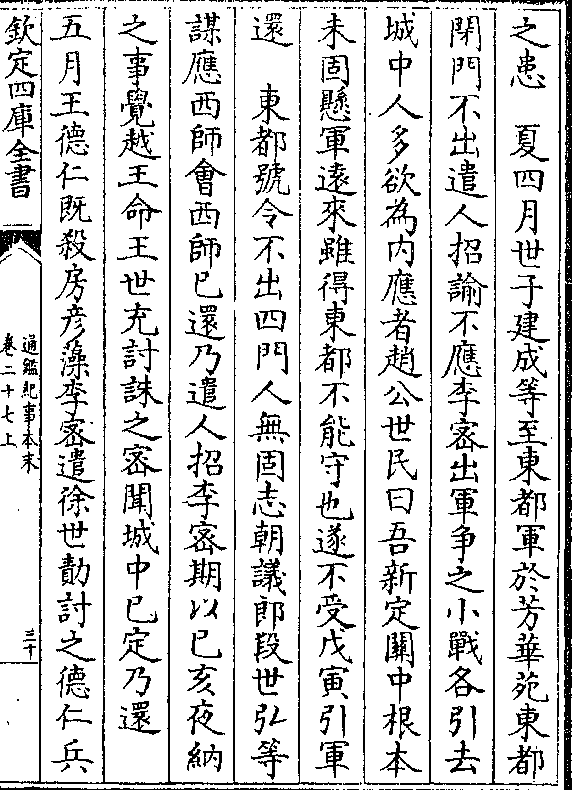 之患　夏四月世子建成等至東都軍於芳華苑東都
閉門不出遣人招諭不應李密出軍争之小戰各引去
城中人多欲為内應者趙公世民曰吾新定關中根本
未固懸軍遠來雖得東都不能守也遂不受戊寅引軍
還　東都號令不出四門人無固志朝議郎段世弘等
謀應西師會西師已還乃遣人招李密期以已亥夜納
之事覺越王命王世充討誅之密聞城中已定乃還
五月王德仁既殺房彦藻李密遣徐世勣討之德仁兵
欽定四庫全書
通鑑紀事本末
卷二十七上
三十